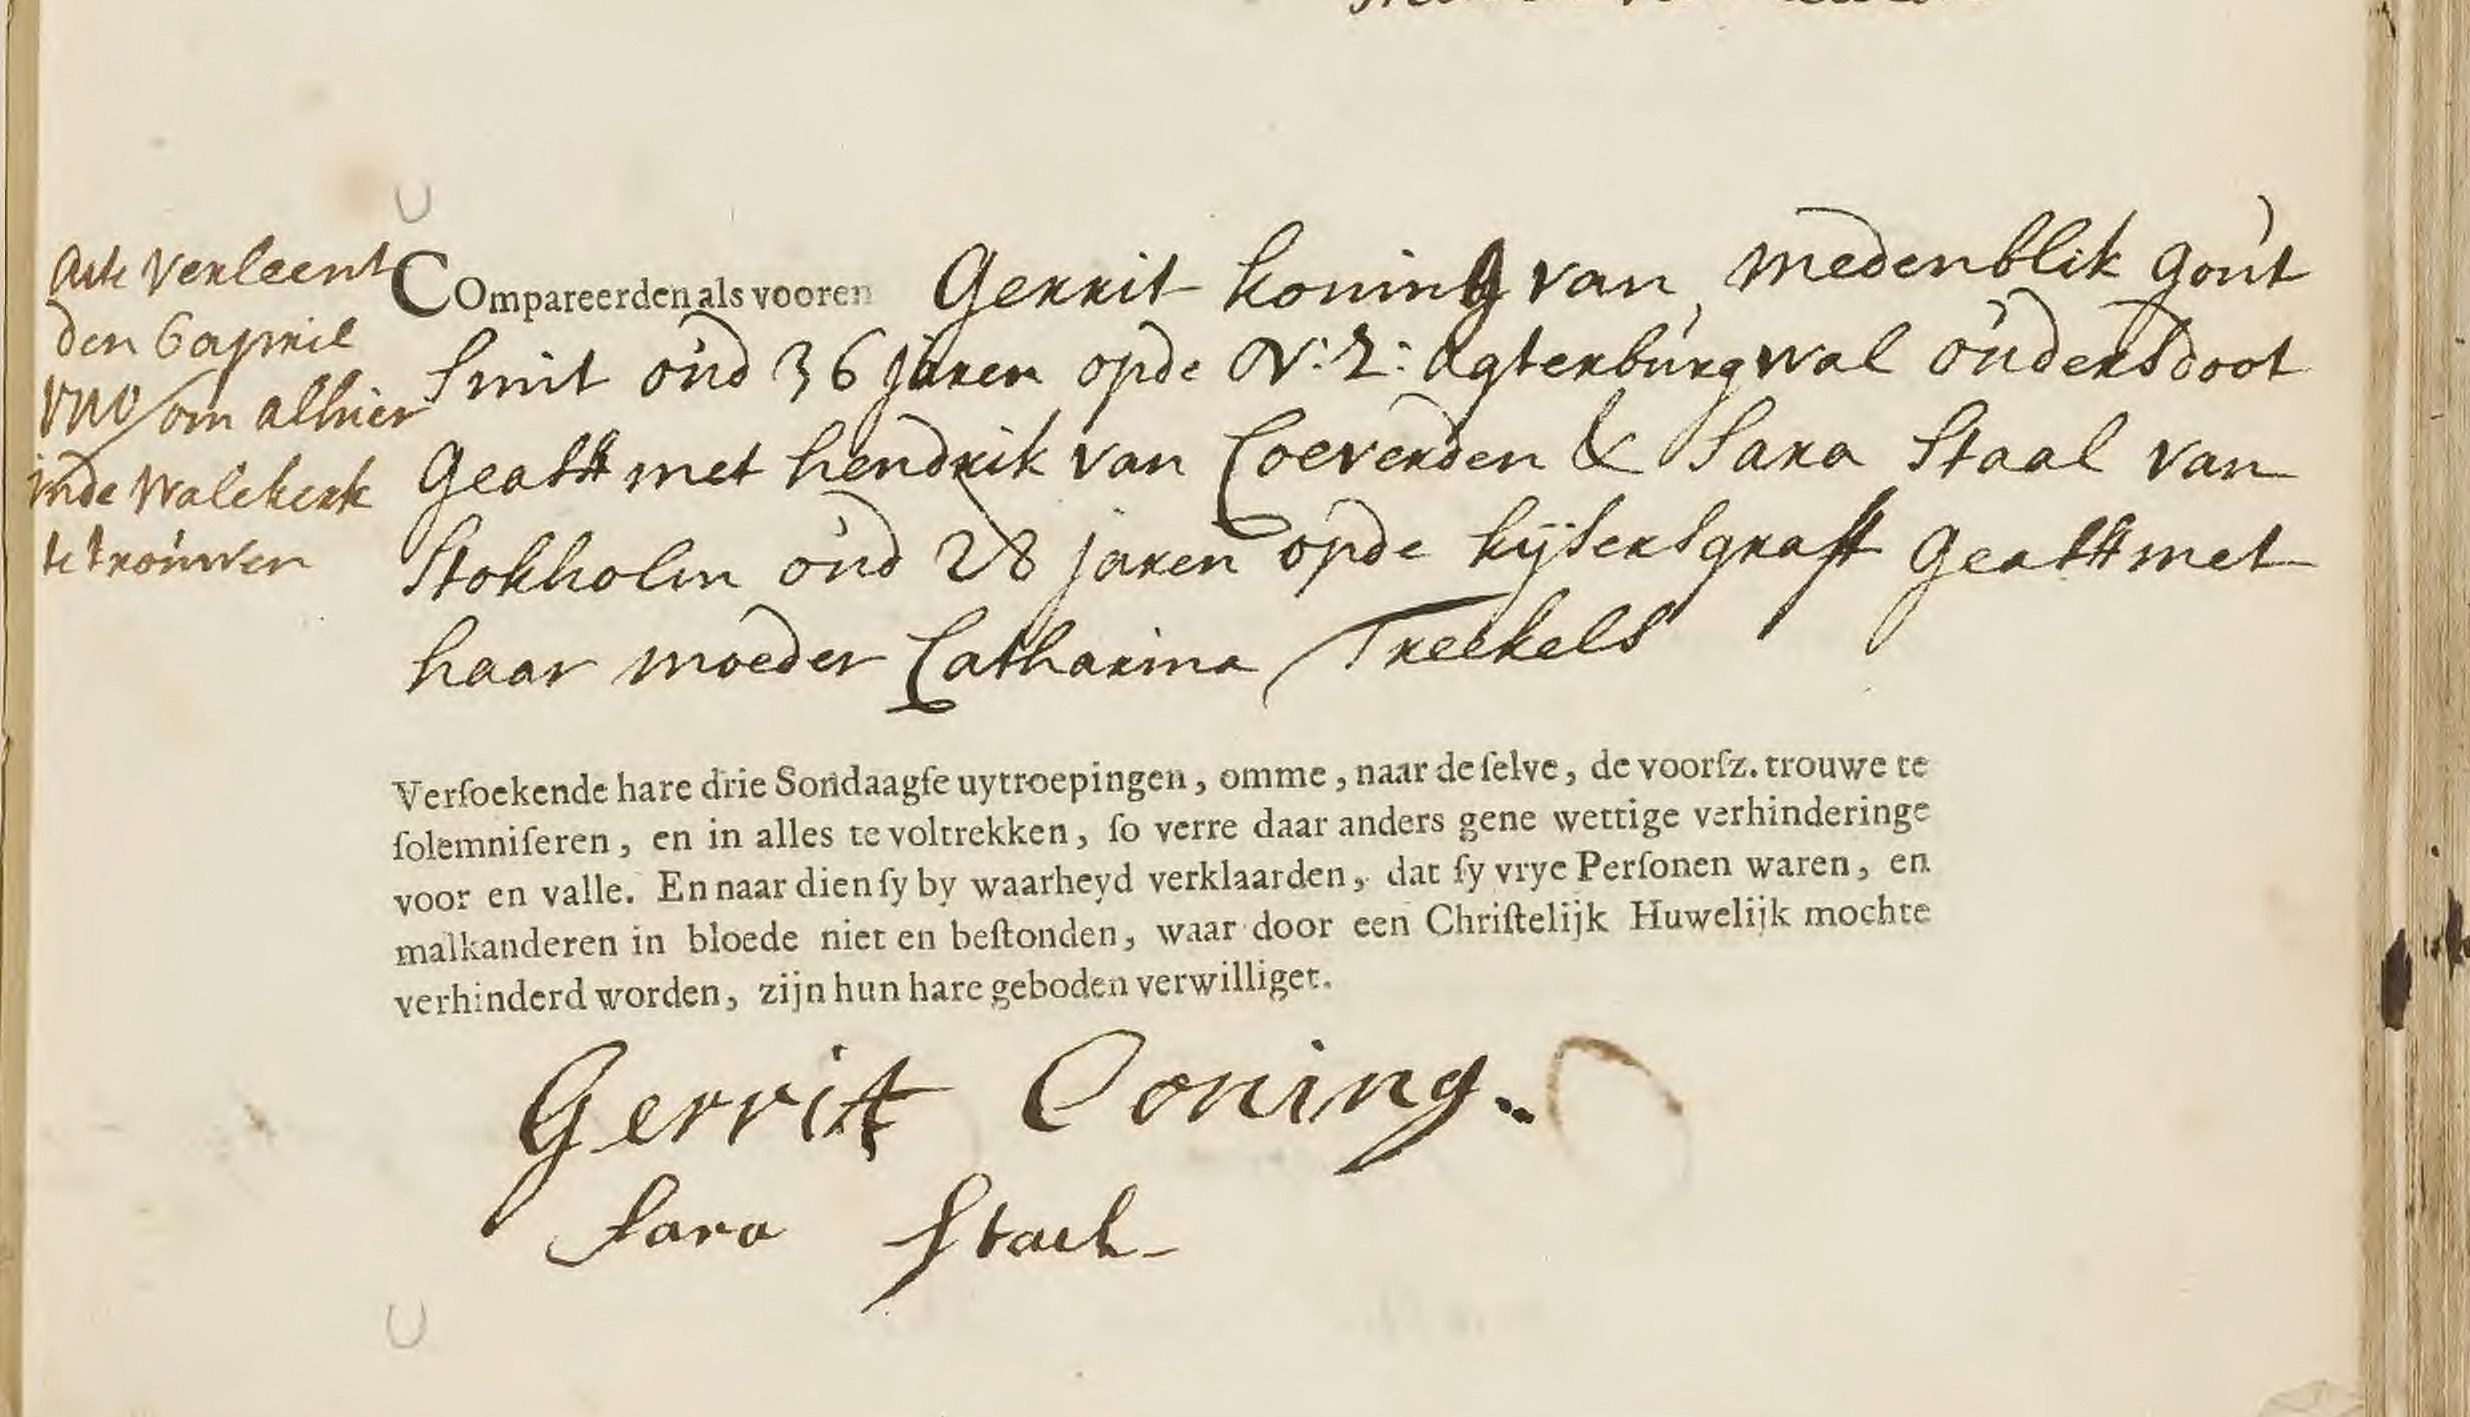 Acte verleent
den 6 april
1710 / om alhier
inde Walekerk
te trouwen
COmpareerden als vooren Gerrit koning van medenblik gout
Smit oud 36 jaren opde N: Z: Agterburgwal oudersdoot
Geastt met hendrik van Coeverden & Sara Staal van
Stokholm oud 28 jaren opde kijsersgraft Geastt met
haar moeder Catharina Treekels
Verſoekende hare drie Sondaagſe uytroepingen, omme, naar de ſelve, de voorſz. trouwe te
ſolemniſeren, en in alles te voltrekken, ſo verre daar anders gene wettige verhinderinge
voor en valle. En naar dien ſy by waarheyd verklaarden, dat ſy vrye Perſonen waren, en
malkanderen in bloede niet en beſtonden, waar door een Chriſtelijk Huwelijk mochte
verhinderd worden, zijn hun hare geboden verwilliget.
Gerrit Coning
Sara Stael